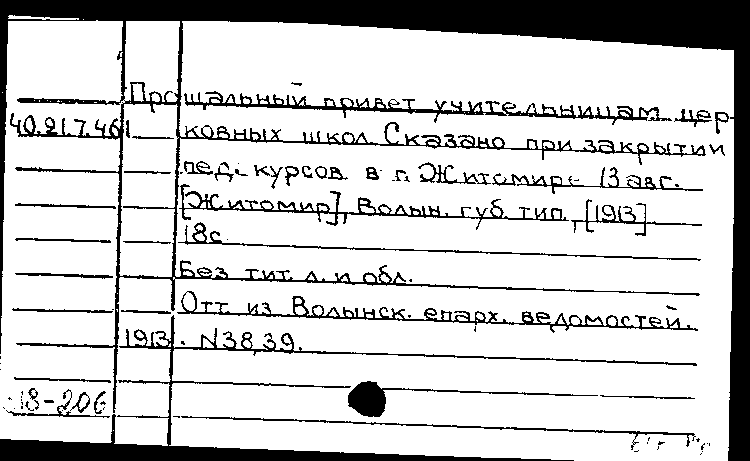 Прощальный привет учительницам цер-
40.217.461 ковных школ. Сказано при закрытии
пед. курсов в г. Житомире 13 авг.
[Житомир], Волын. губ. тип., [1913]
18с
Без тит. л. и обл.
Отт. из Волынск. епарх. ведомостей.
1913. N38,39.
18-206